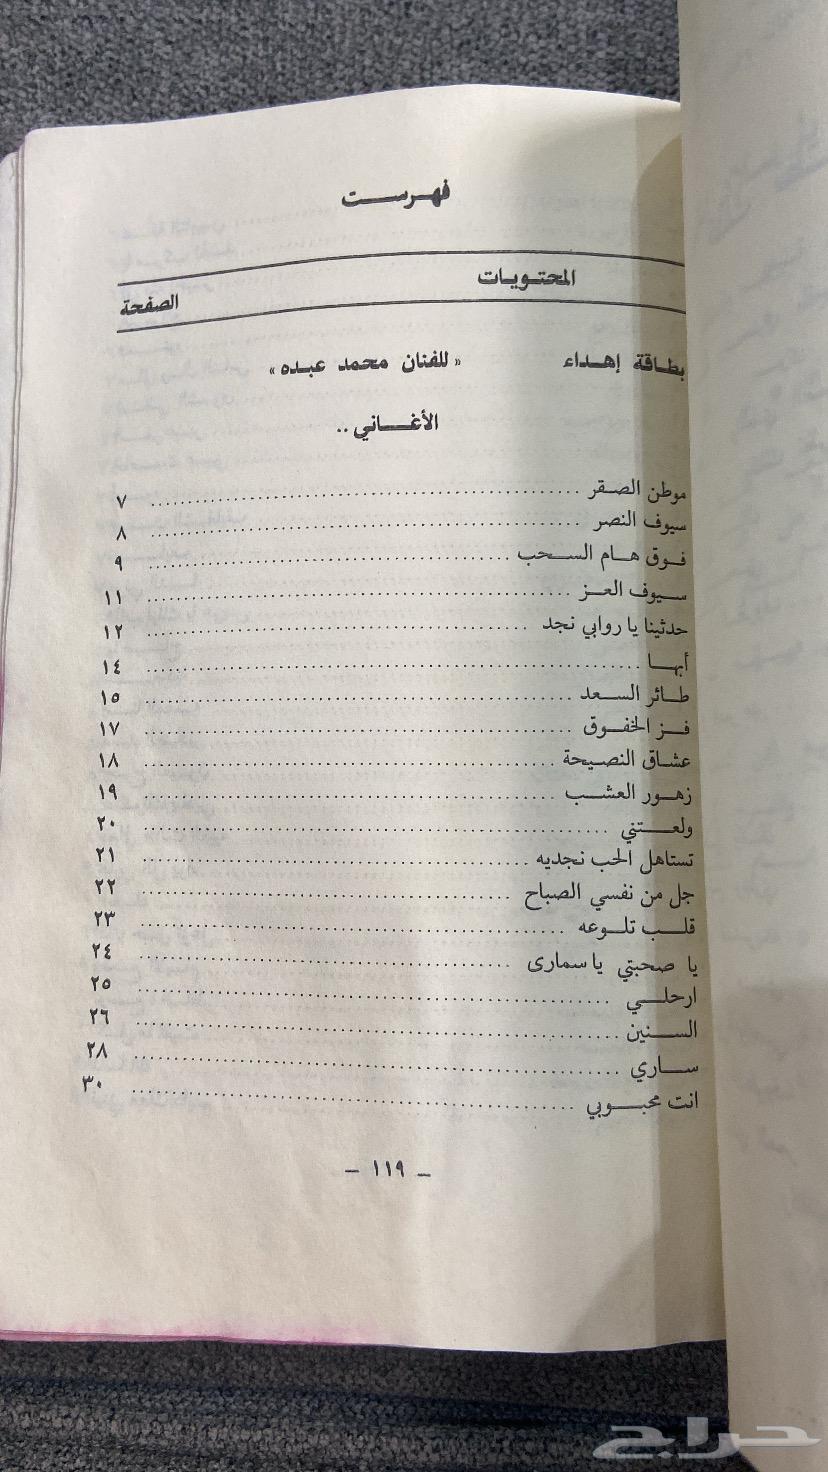 فهرست
المحتويات
الصفحة
بطاقة إهداء « للفنان محمد عبده »
الأغاني ..
موطن الصقر .......... ٧
سيوف النصر .......... ٨
فوق هام السحب .......... ٩
سيوف العز .......... ١١
حدثينا يا روابي نجد .......... ١٢
أبها .......... ١٤
طائر السعد .......... ١٥
فز الخفوق .......... ١٧
عشاق النصيحة .......... ١٨
زهور العشب .......... ١٩
ولعتني .......... ٢٠
تستاهل الحب نجديه .......... ٢١
جل من نفسي الصباح .......... ٢٢
قلب تلوعه .......... ٢٣
يا صحبتي يا سمارى .......... ٢٤
ارحلي .......... ٢٥
السنين .......... ٢٦
ساري .......... ٢٨
انت محبوبي .......... ٣٠
– ١١٩ –
حراج